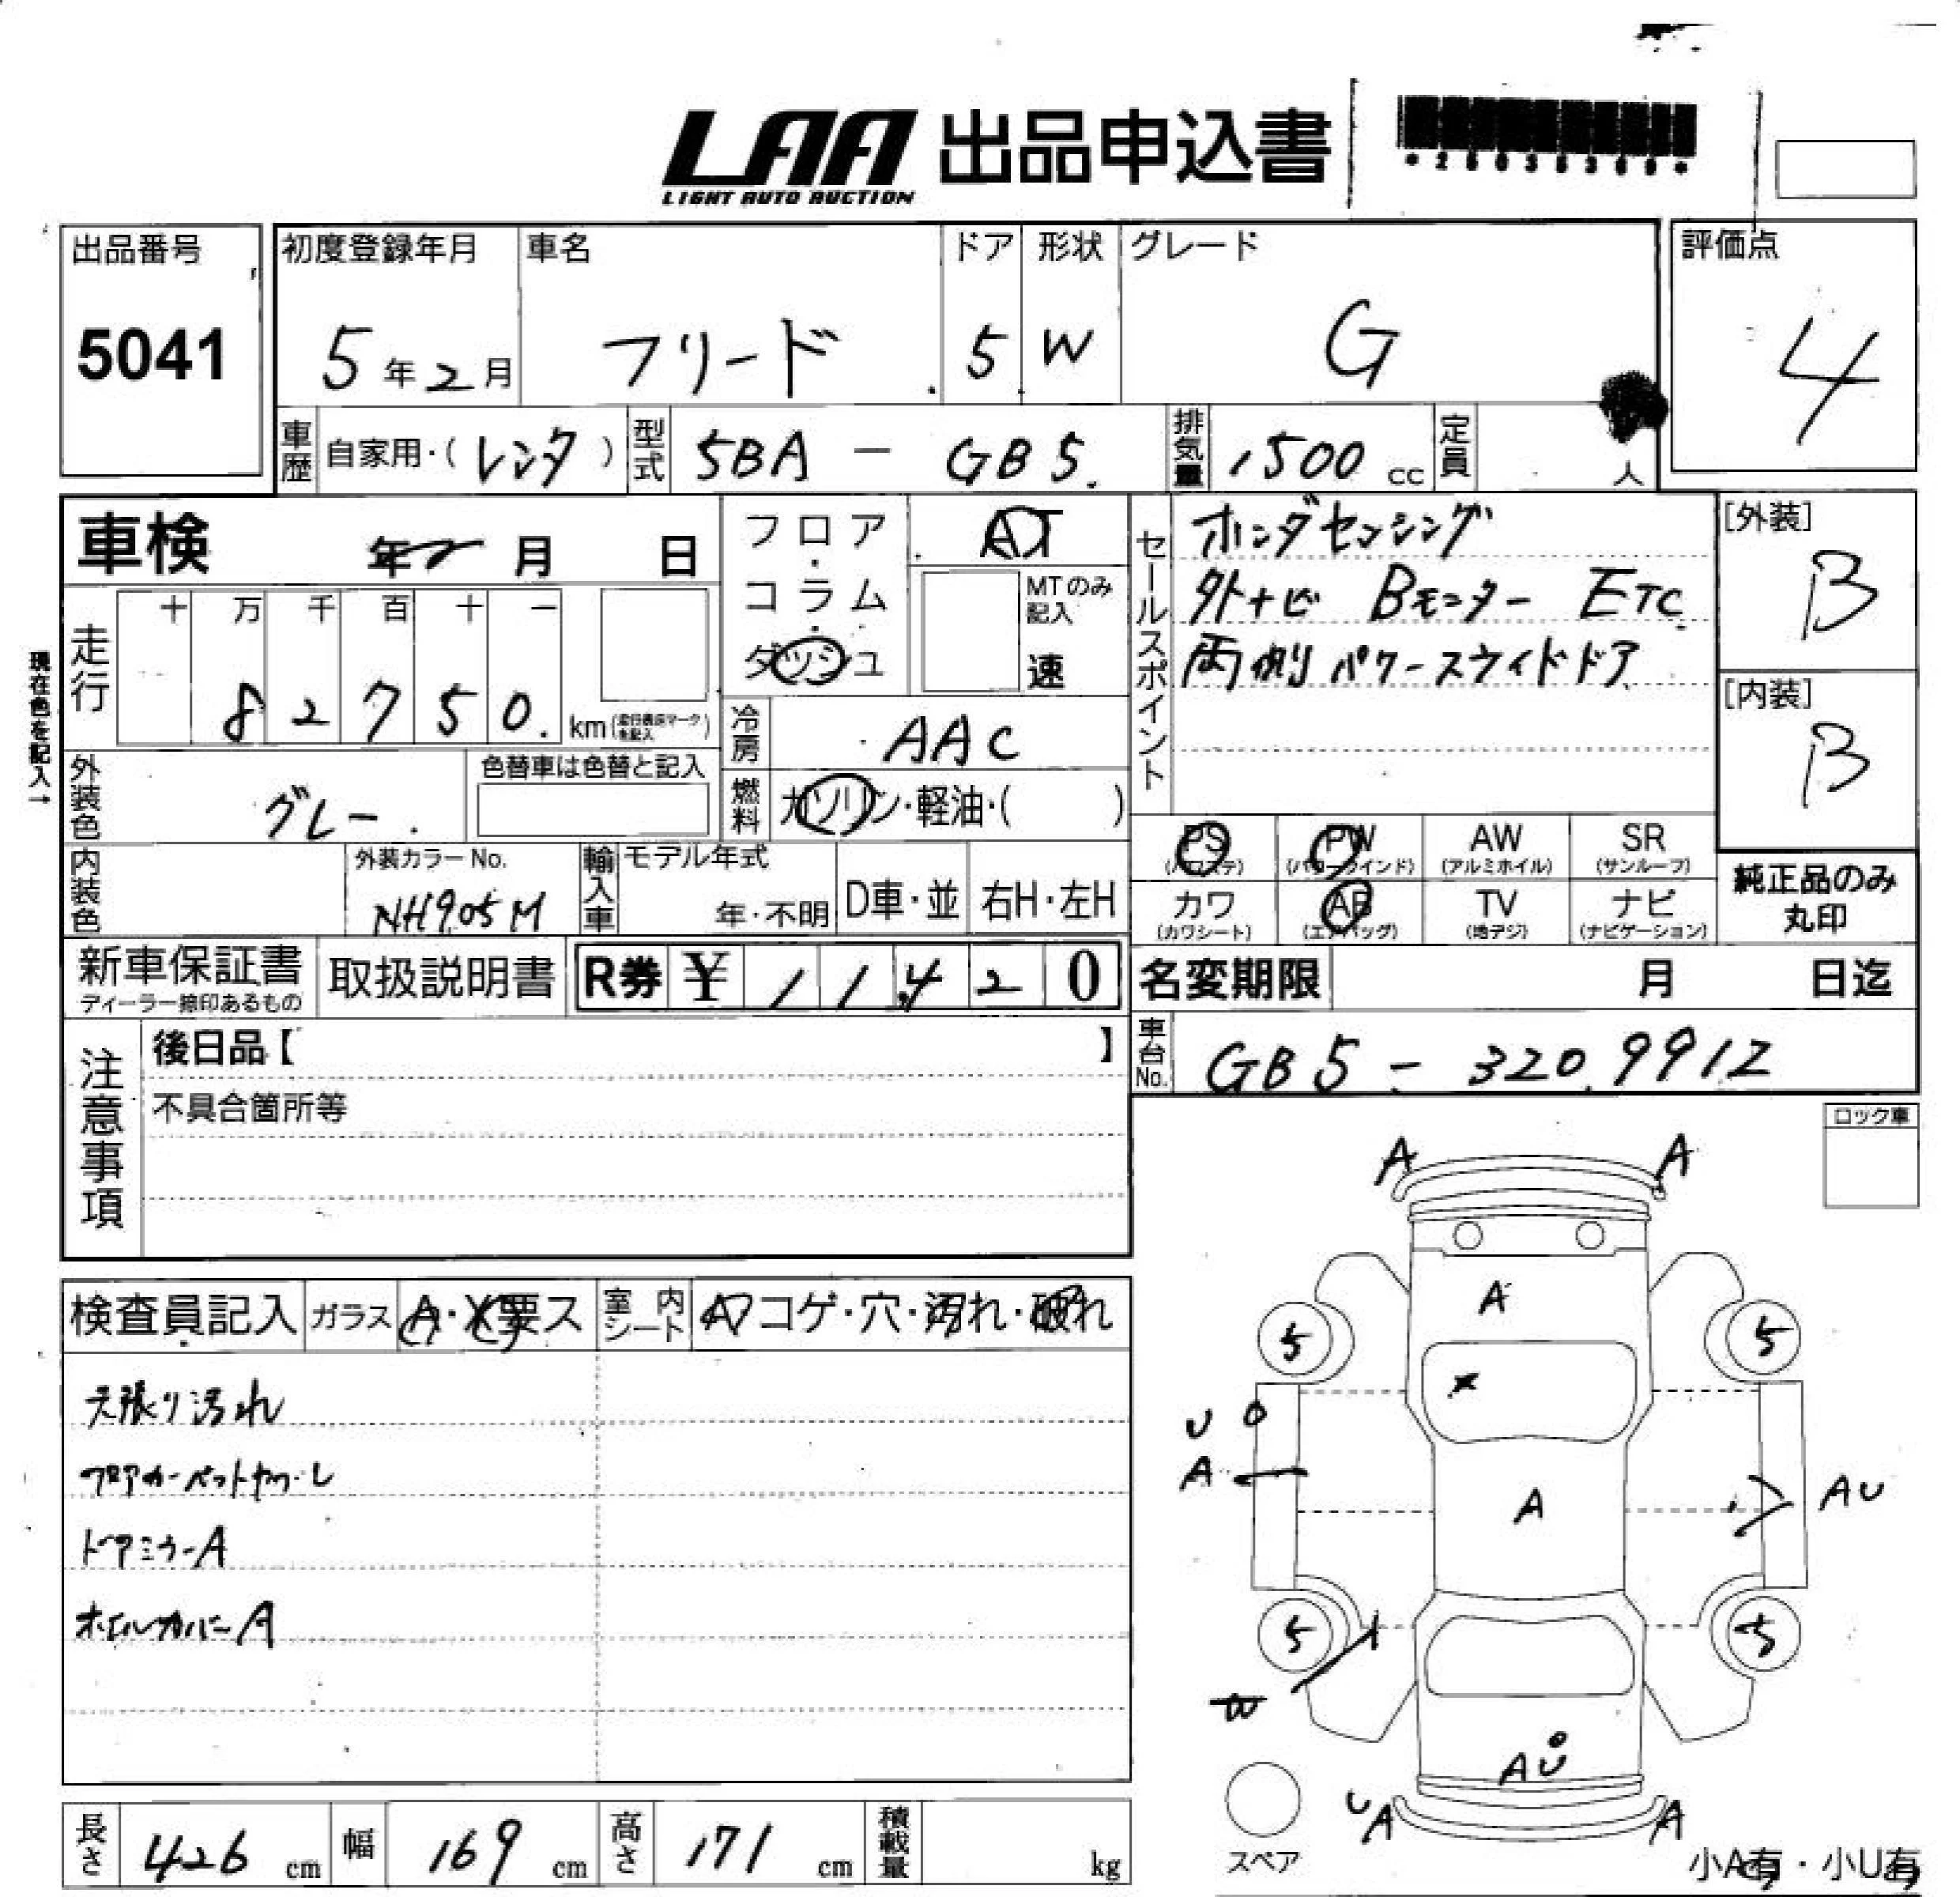 LAA 出品申込書
LIGHT AUTO AUCTION
出品番号
5041
初度登録年月
5年2月
車名
フリード
ドア
5
形状
W
グレード
G
評価点
4
車歴 自家用・(レンタ)
型式 5BA - GB5
排気量 1500 cc
定員 人
車検 年 月 日
フロア・コラム・ダッシュ
AT
MTのみ記入
速
セールスポイント
ホンダセンシング
外ナビ Bモニター ETC
両側パワースライドドア
[外装]
B
[内装]
B
現在色を記入→
走行 十 万 千 百 十 一
82750 km
冷房 AAC
外装色 グレー
色替車は色替と記入
燃料 ガソリン・軽油・( )
内装色
外装カラーNo.
NH905M
輸入車 モデル年式
年・不明
D車・並
右H・左H
PS (パワステ)
PW (パワーウインド)
AW (アルミホイル)
SR (サンルーフ)
カワ (カワシート)
AB (エアバッグ)
TV (地デジ)
ナビ (ナビゲーション)
純正品のみ
丸印
新車保証書
ディーラー捺印あるもの
取扱説明書
R券 ¥ 11420
名変期限 月 日迄
車台No. GB5 - 3209912
注意事項
後日品【 】
不具合箇所等
ロック車
検査員記入
ガラス A・X・要ス
室内シート コゲ・穴・汚れ・破れ
天張り汚れ
フロアカーペット
ドアミラーA
ホイルカバーA
A A
A
5 5
U
A
A
AU
5 5
W
AU
U A A
スペア
小A有・小U有
長さ 426 cm
幅 169 cm
高さ 171 cm
積載量 kg